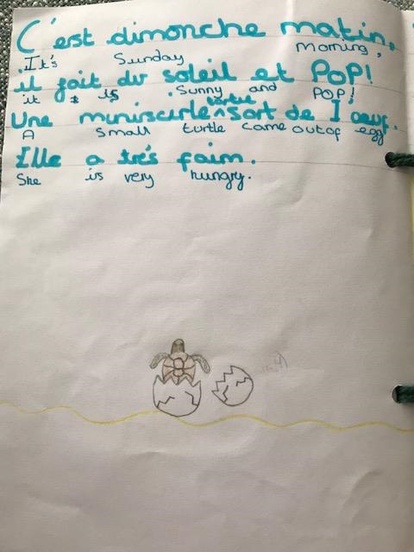 C'est dimonche matin,
It's Sunday Morning,
il fait du soleil et POP!
it is Sunny and POP!
tortue
Une miniscurle ^ sort de l'oeuf.
A Small turtle came out of egg
Elle a trés faim.
She is very hungry.